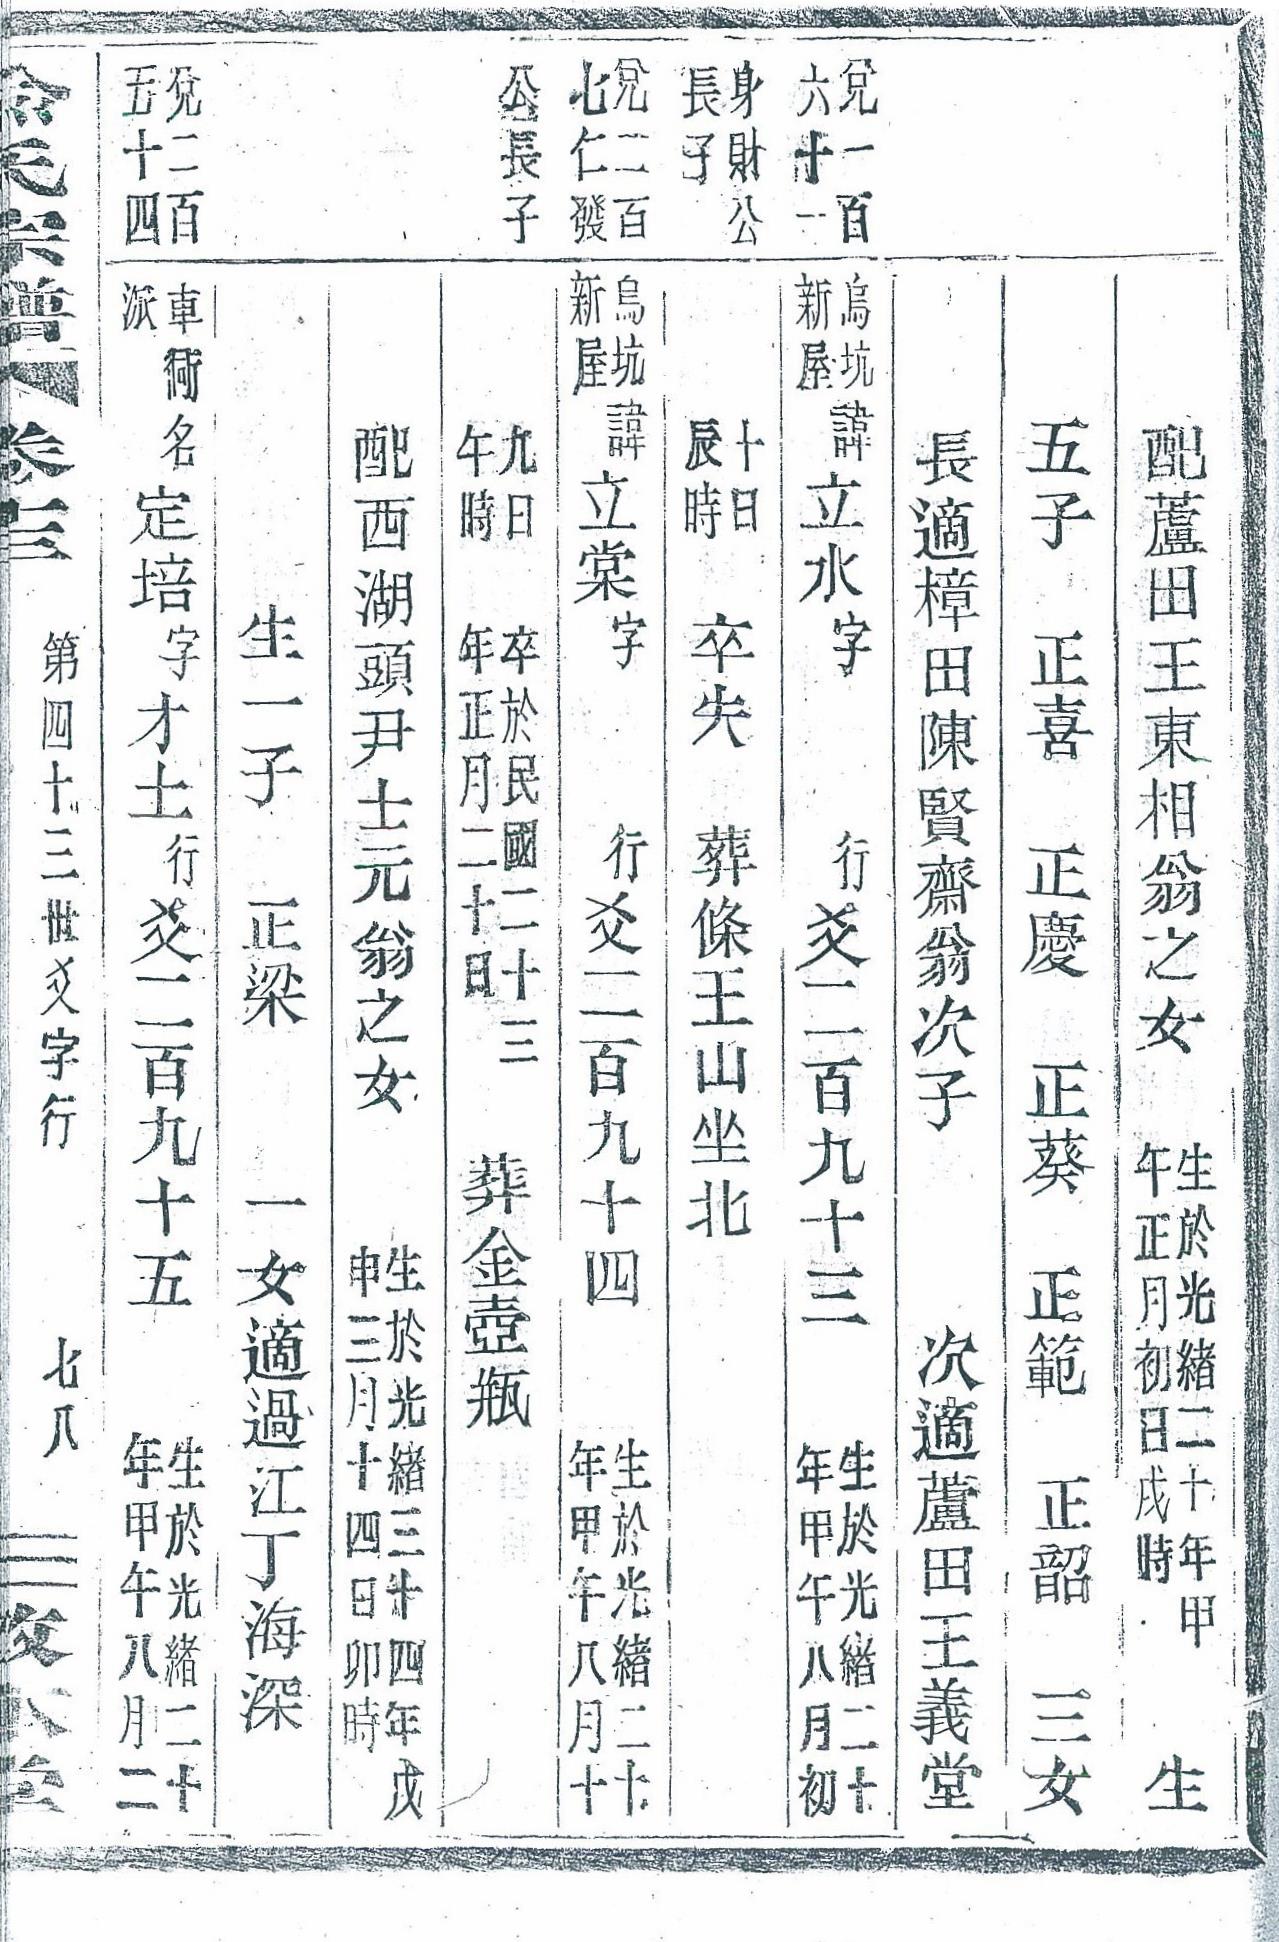 配蘆田王東相翁之女 生於光緒二十年甲午正月初日戌時 生
五子 正喜 正慶 正葵 正範 正韶 三女
長適樟田陳賢齋翁次子 次適蘆田王義堂
兌一百六十一 身財公長子
烏坑新屋諱立水字 行爻二百九十三 生於光緒二十年甲午八月初
十日辰時 卒失 葬條王山坐北
兌二百七仁發公長子
烏坑新屋諱立棠字 行爻二百九十四 生於光緒二十年甲午八月十
九日午時 卒於民國二十三年正月二十日 葬金壺瓶
配西湖頭尹士元翁之女 生於光緒三十四年戊申三月十四日卯時
生一子 正梁 一女適過江丁海深
兌二百五十四
車衕派名定培字才士行爻二百九十五 生於光緒二十年甲午八月二
氏宗譜 卷三 第四十三世爻字行 七八 三 堂